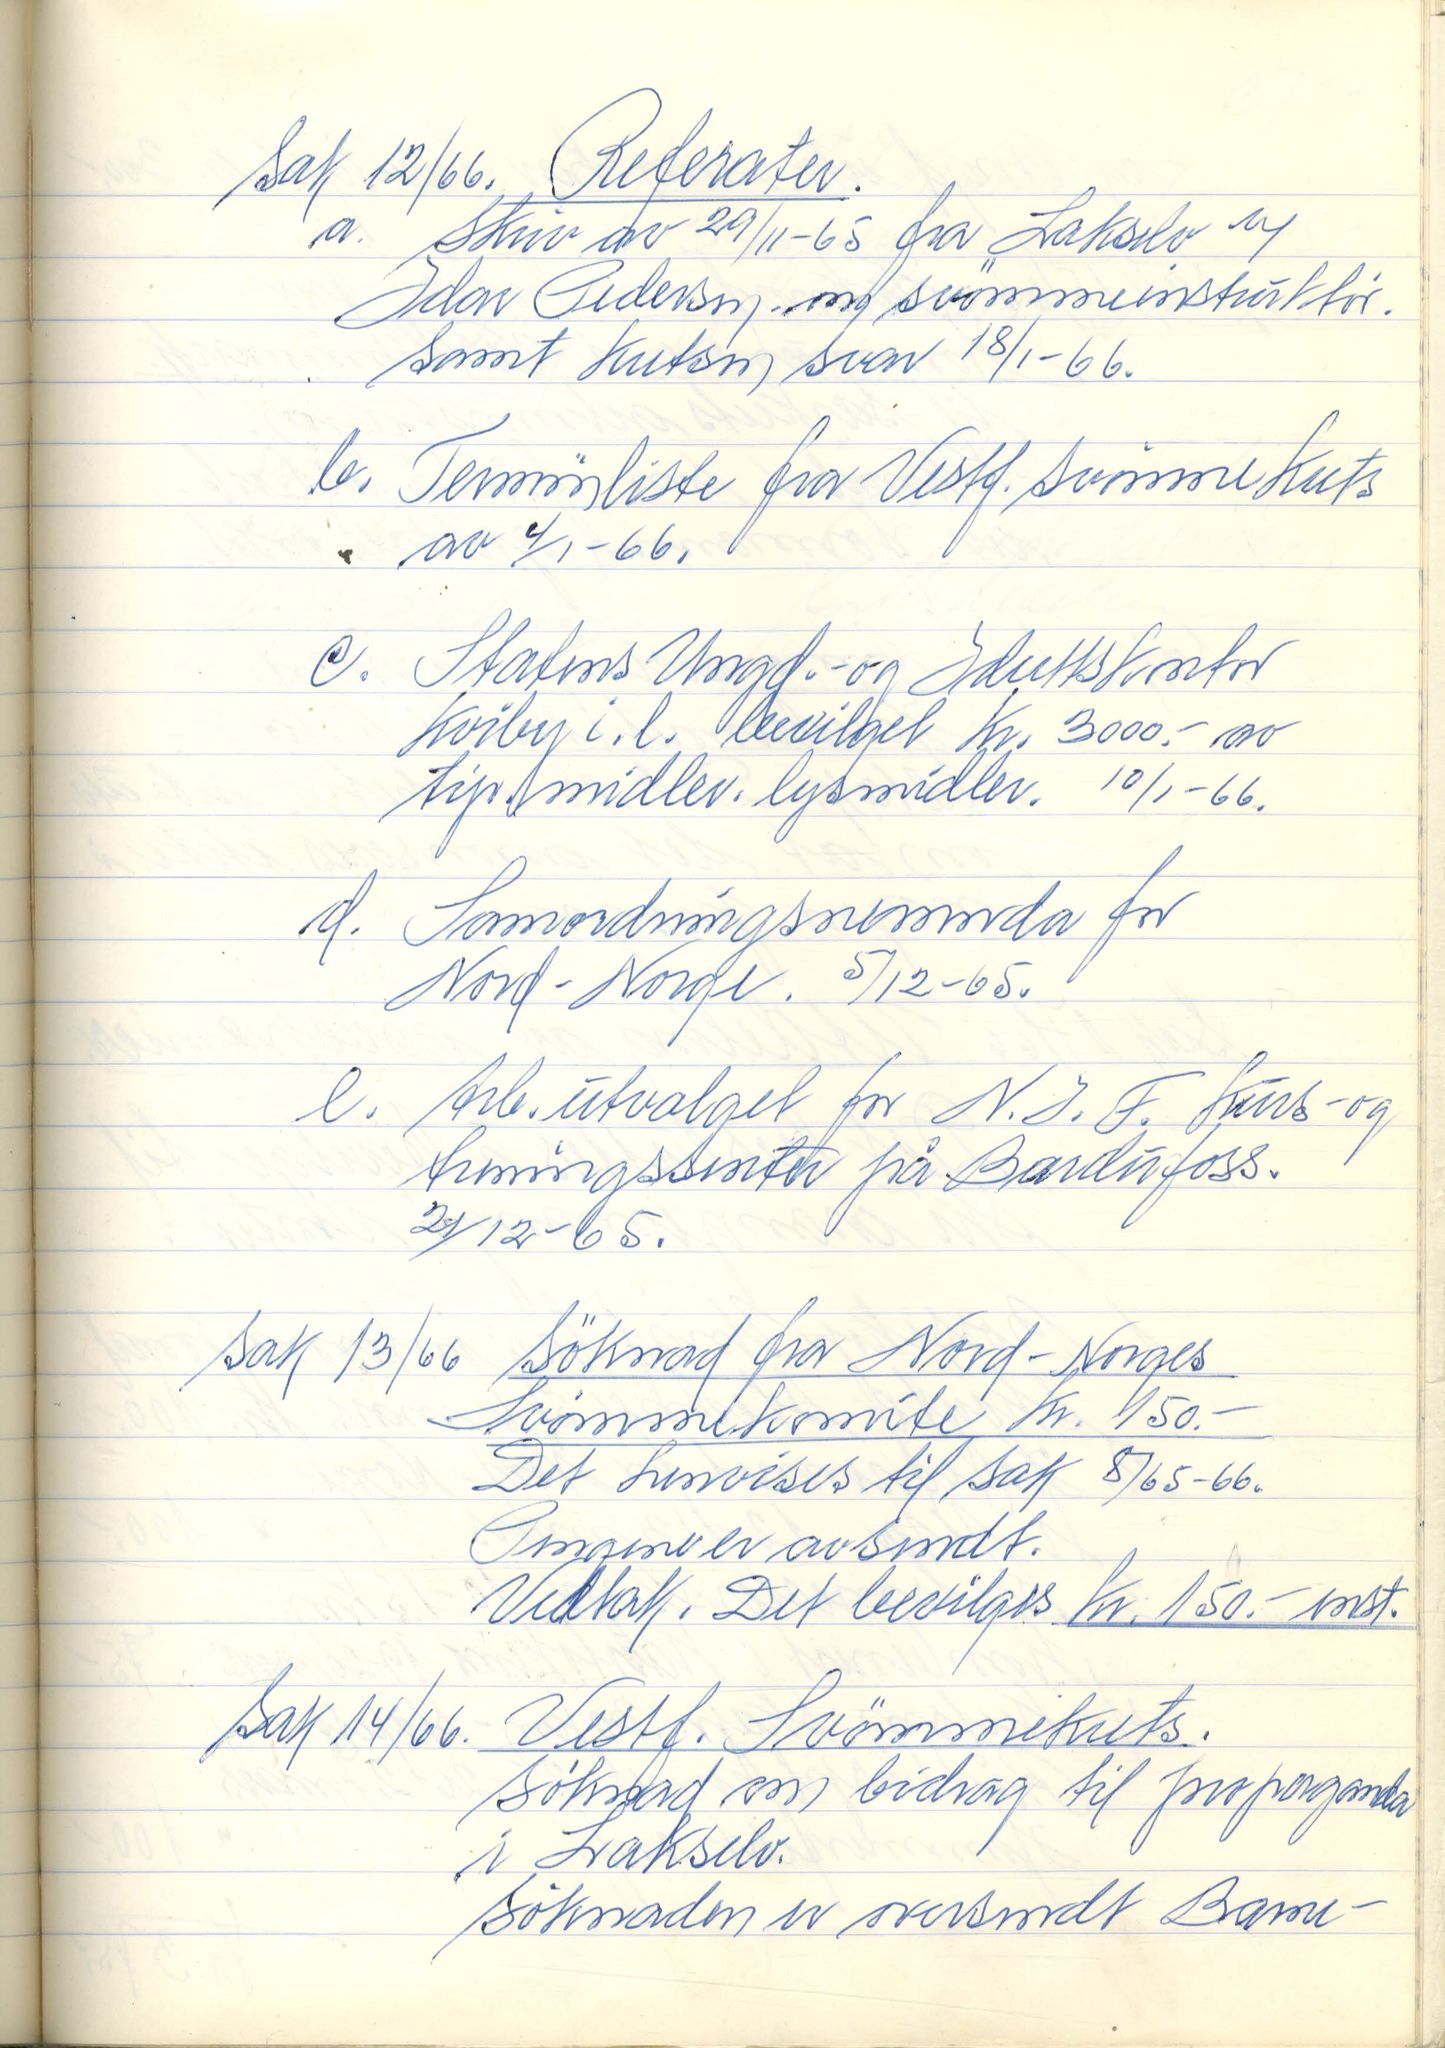 Sak 12/66. Referater.
a. Skriv av 29/11-65 fra Lakselv v/
Idar Pedersen om svömmeinstruktör.
Samt kretsen svar 18/1-66.
b. Terminliste fra Vestf. svömmekrets
av 4/1-66.
c. Statens Ungd.-og Idrettskontor
Kviby i.l. bevilget kr. 3000.- av
tip.midler. lysmidler. 10/1-66.
d. Samordningsnemnda for
Nord-Norge. 5/12-65.
e. Arb.utvalget for N.I.F. kurs-og
treningssenter på Bardufoss.
21/12-65.
Sak 13/66 Söknad fra Nord-Norges
Svömmekomite kr. 150.-
Det henvises til sak 8/65-66.
Pengene er avsendt.
Vedtak. Det bevilges kr. 150.- enst.
Sak 14/66. Vestf. Svömmekrets.
Söknad om bidrag til propaganda
i Lakselv.
Söknaden er oversendt Bane-